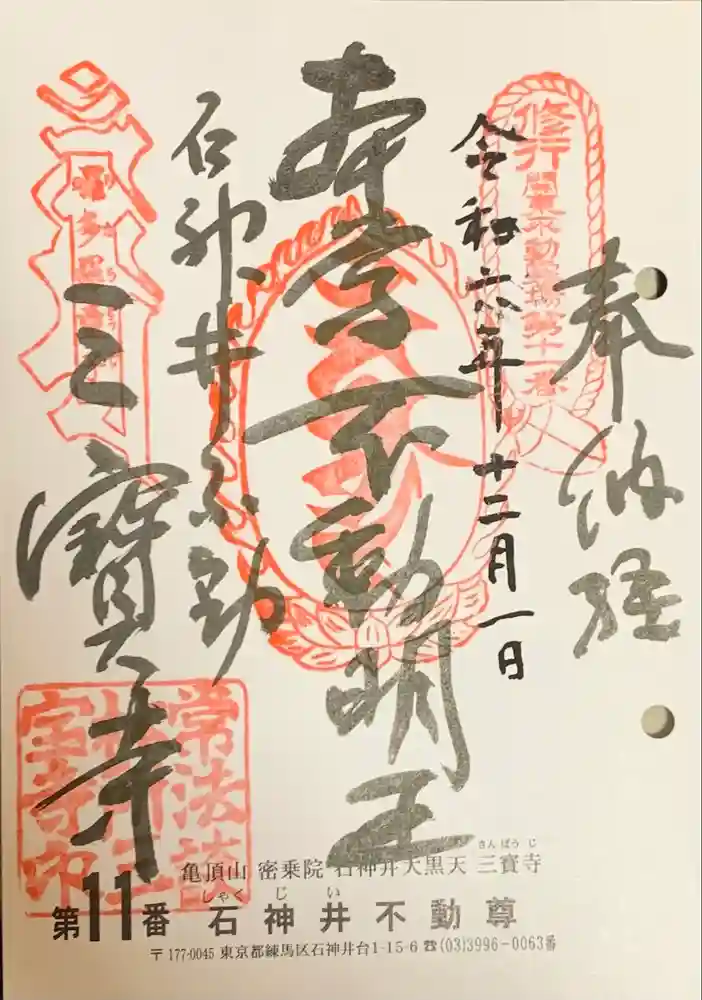 奉納経
令和六年十二月一日
本尊不動明王
石神井不動
三寳寺
修行
関東不動霊場第十一番
亀頂山 密乗院 石神井大黒天 三寳寺
さんぽうじ
しゃくじい
第11番 石神井不動尊
〒177-0045 東京都練馬区石神井台1-15-6 ☎(03)3996-0063番